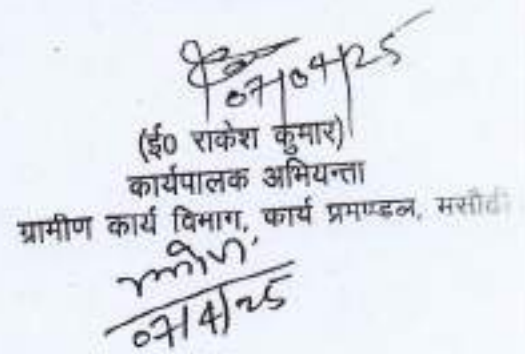 07/04/25
(ई० राकेश कुमार)
कार्यपालक अभियन्ता
ग्रामीण कार्य विभाग, कार्य प्रमण्डल, मसौढ़ी
07/4/25